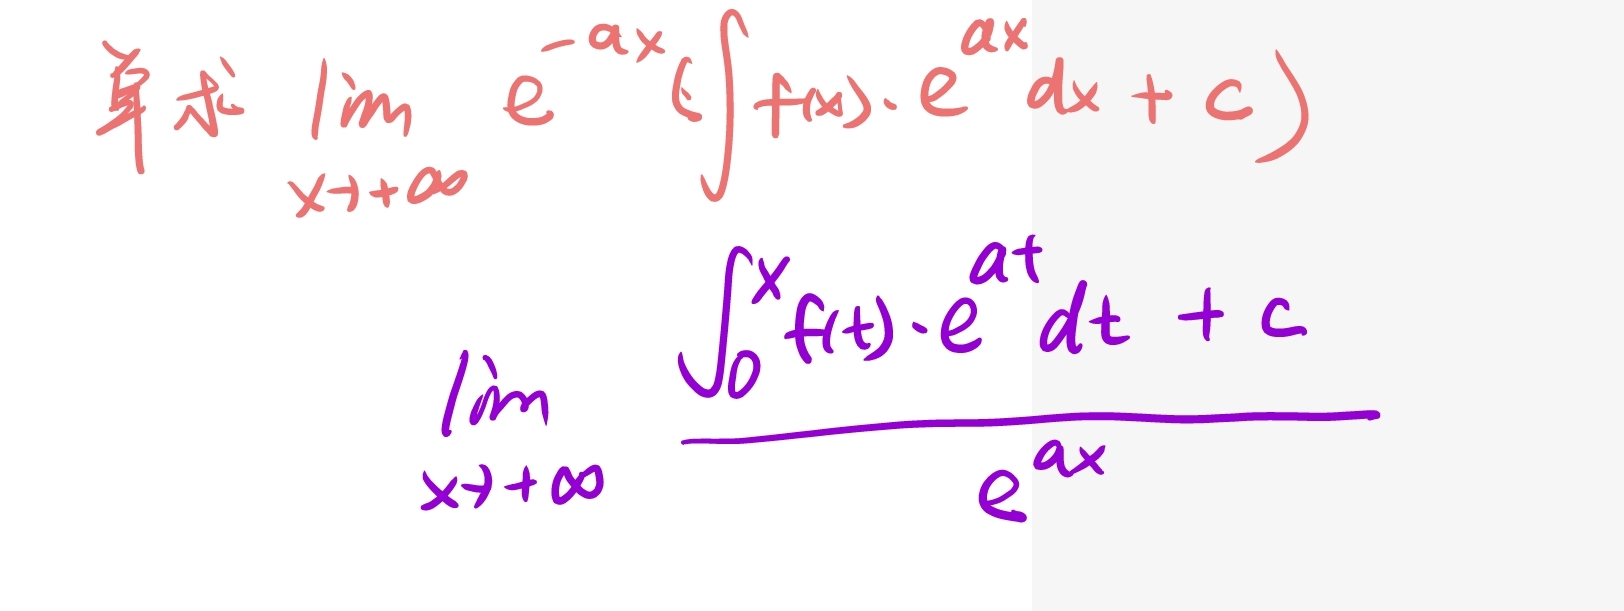 单求 lim x→+∞ e^{-ax} (∫ f(x)·e^{ax} dx + c)
lim x→+∞ \frac{∫_0^x f(t)·e^{at} dt + c}{e^{ax}}